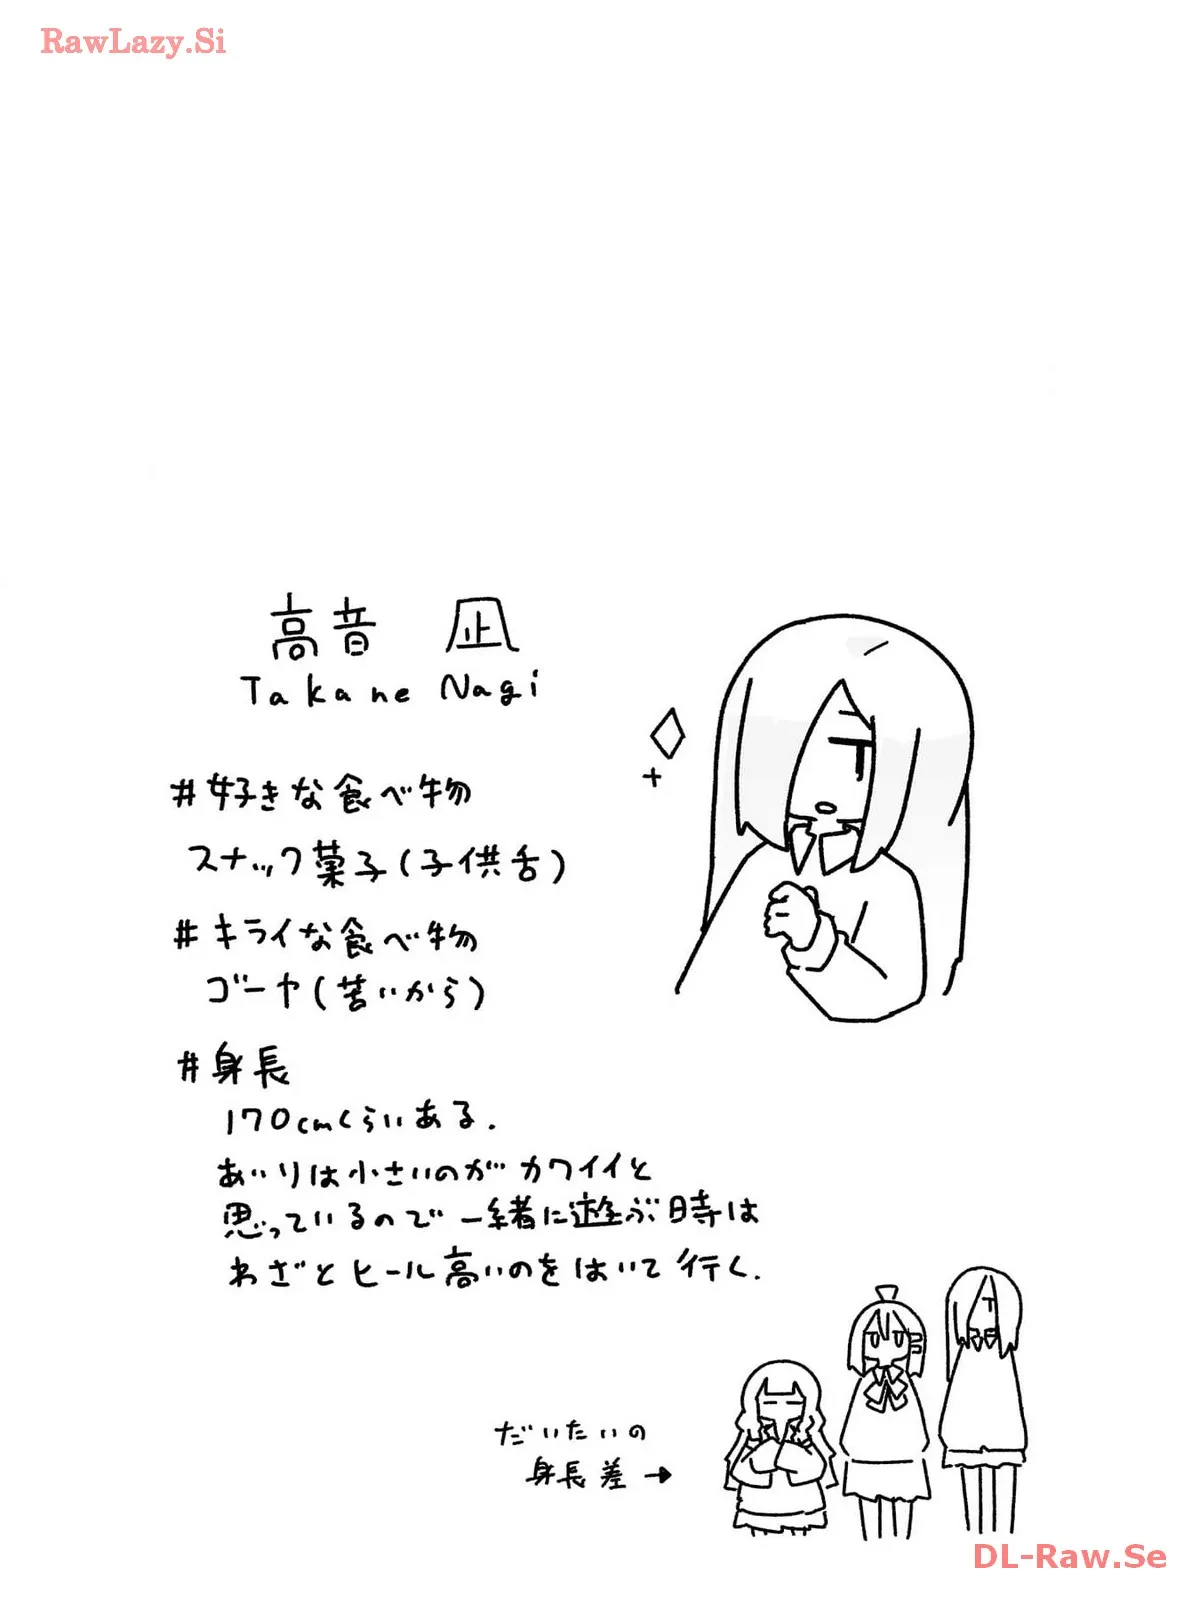 RawLazy.Si
高音 凪
Takane Nagi
#好きな食べ物
スナック菓子(子供舌)
#キライな食べ物
ゴーヤ(苦いから)
#身長
170cmくらいある.
あいりは小さいのがカワイイと
思っているので一緒に遊ぶ時は
わざとヒール高いのをはいて行く.
だいたいの
身長差→
DL-Raw.Se